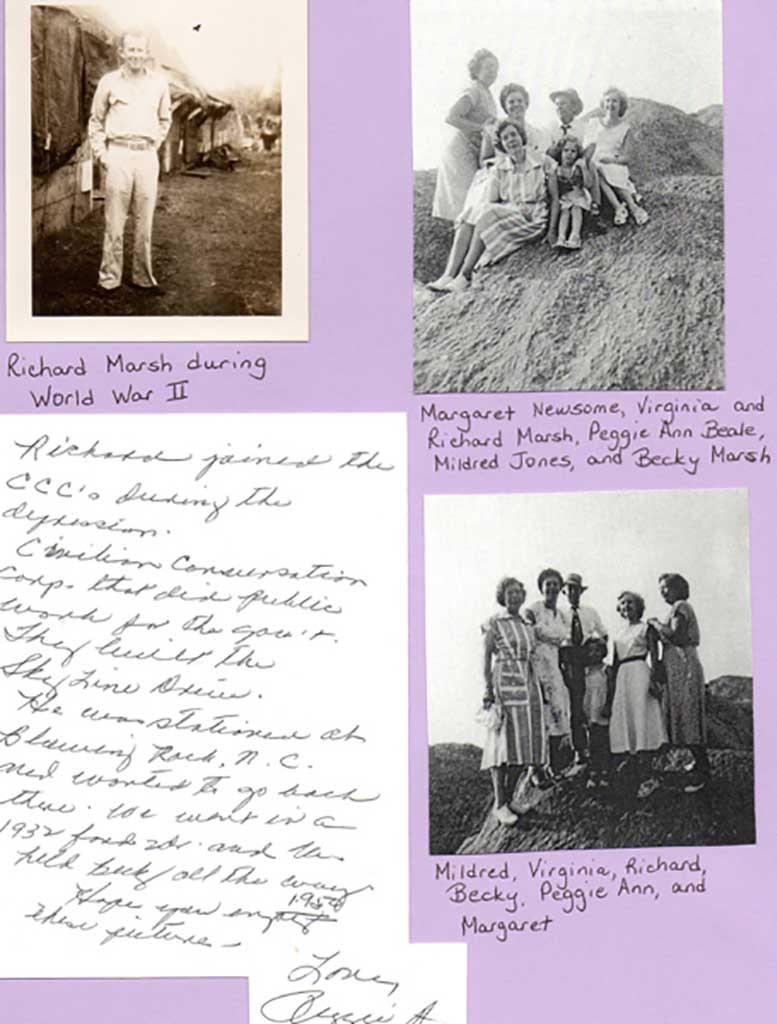 Richard Marsh during
World War II
Margaret Newsome, Virginia and
Richard Marsh, Peggie Ann Beale,
Mildred Jones, and Becky Marsh
Richard joined the
CCC's During the
depression.
Civilian Conservation
Corp. that did public
work for the gov't.
They built the
Sky Line Drive.
He was stationed at
Blowing Rock, N.C.
and wanted to go back
there. We went in a
1932 ford 2dr. and
held Becky all the way
Hope you enjoy
these pictures
Love,
Peggie A.
Mildred, Virginia, Richard,
Becky, Peggie Ann, and
Margaret